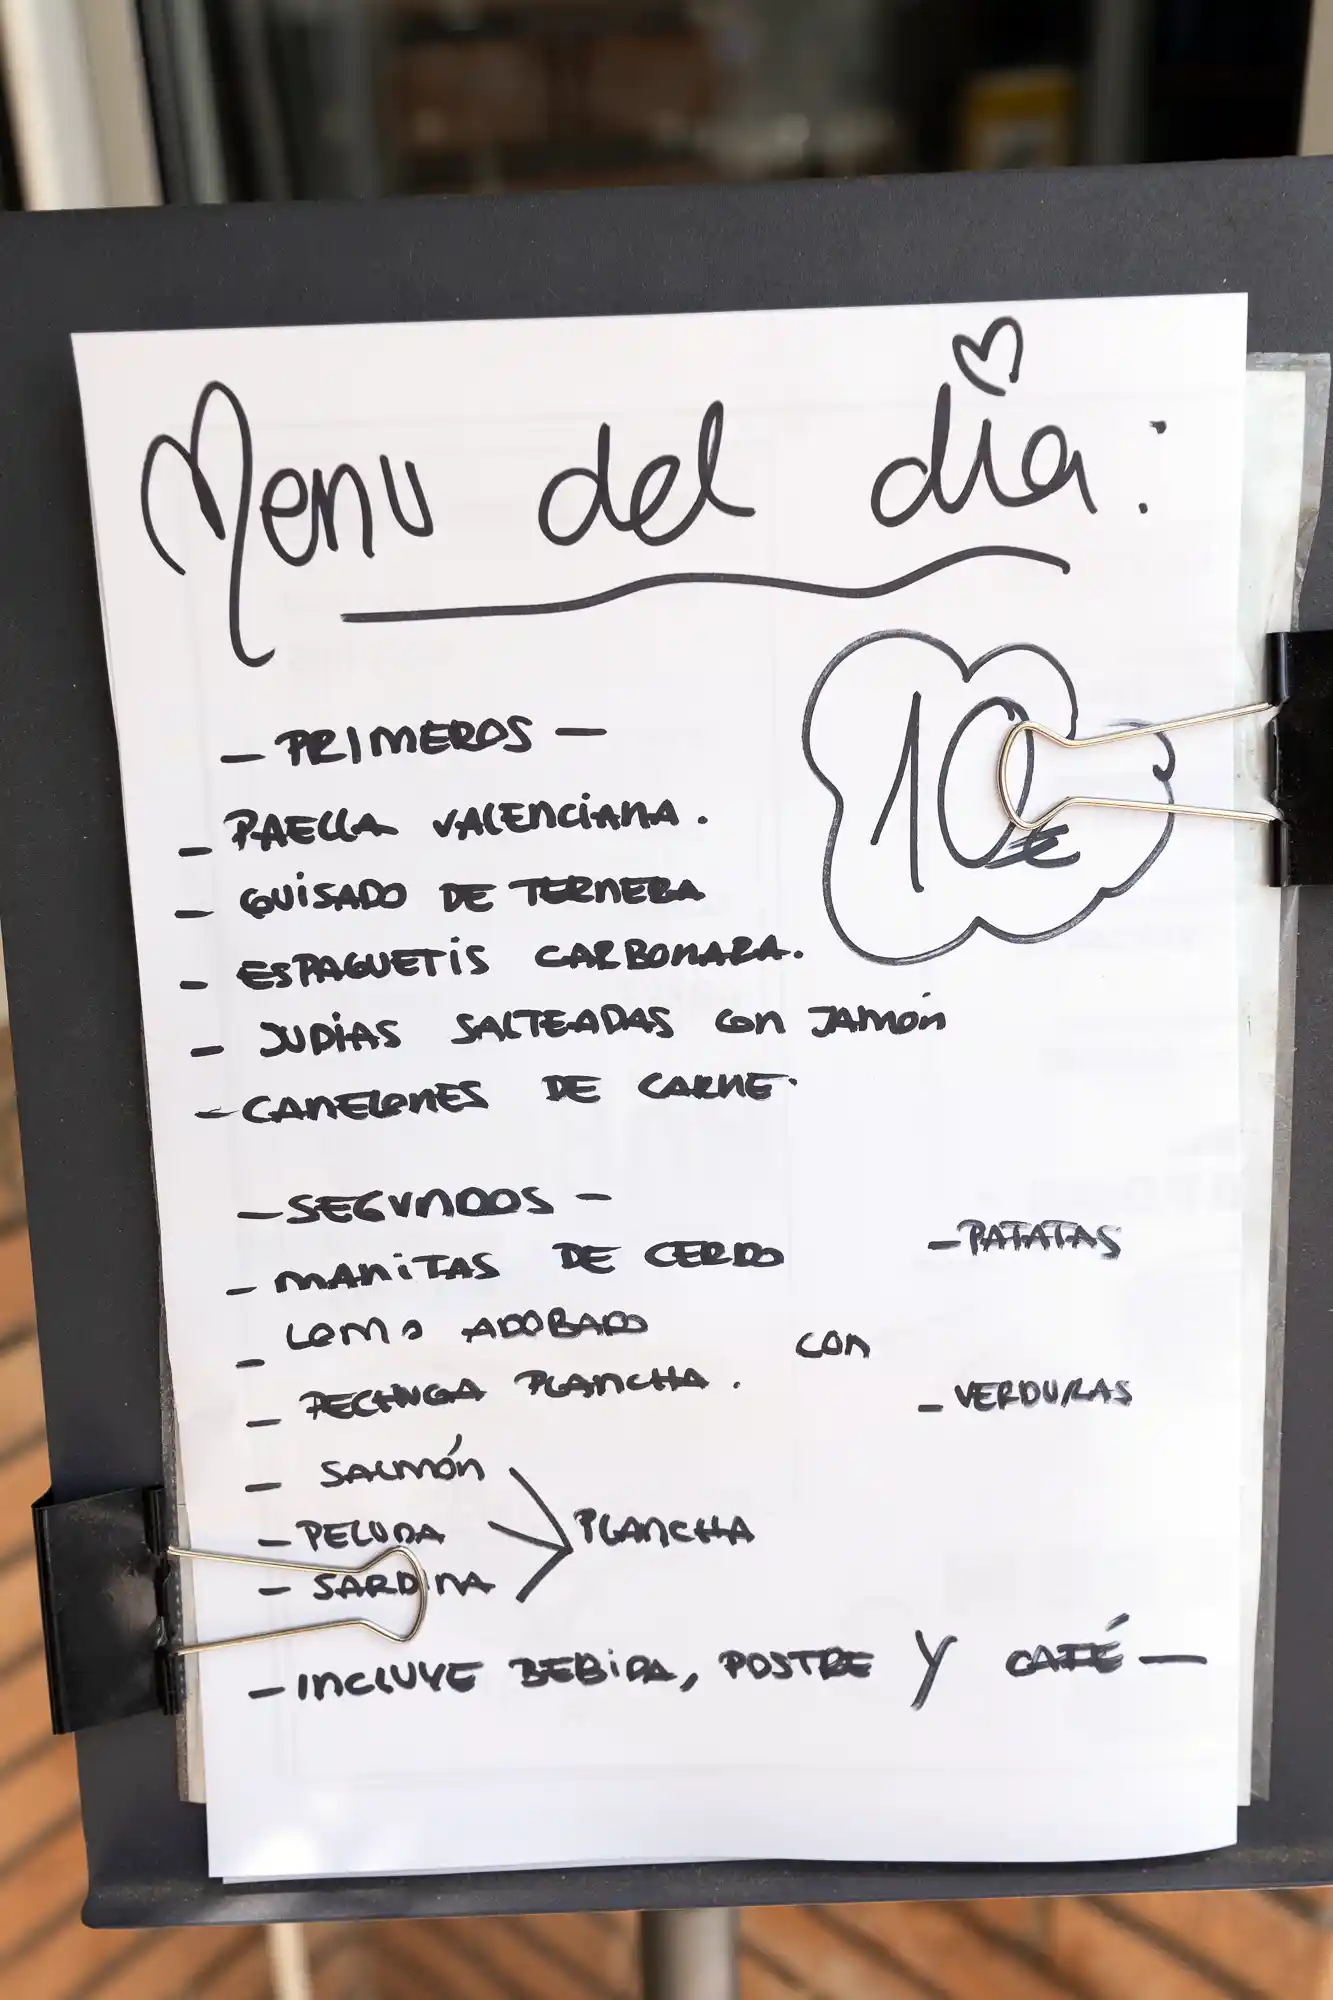 Menu del día:
10€
- PRIMEROS -
- PAELLA VALENCIANA.
- GUISADO DE TERNERA
- ESPAGUETIS CARBONARA.
- JUDIAS SALTEADAS con JAMÓN
- CANELONES DE CARNE.
- SEGUNDOS -
- MANITAS DE CERDO
- LOMO ADOBADO
- PECHUGA PLANCHA.
con
- PATATAS
- VERDURAS
- SALMÓN
- PELUDA
- SARDINA
PLANCHA
- INCLUYE BEBIDA, POSTRE Y CAFÉ -